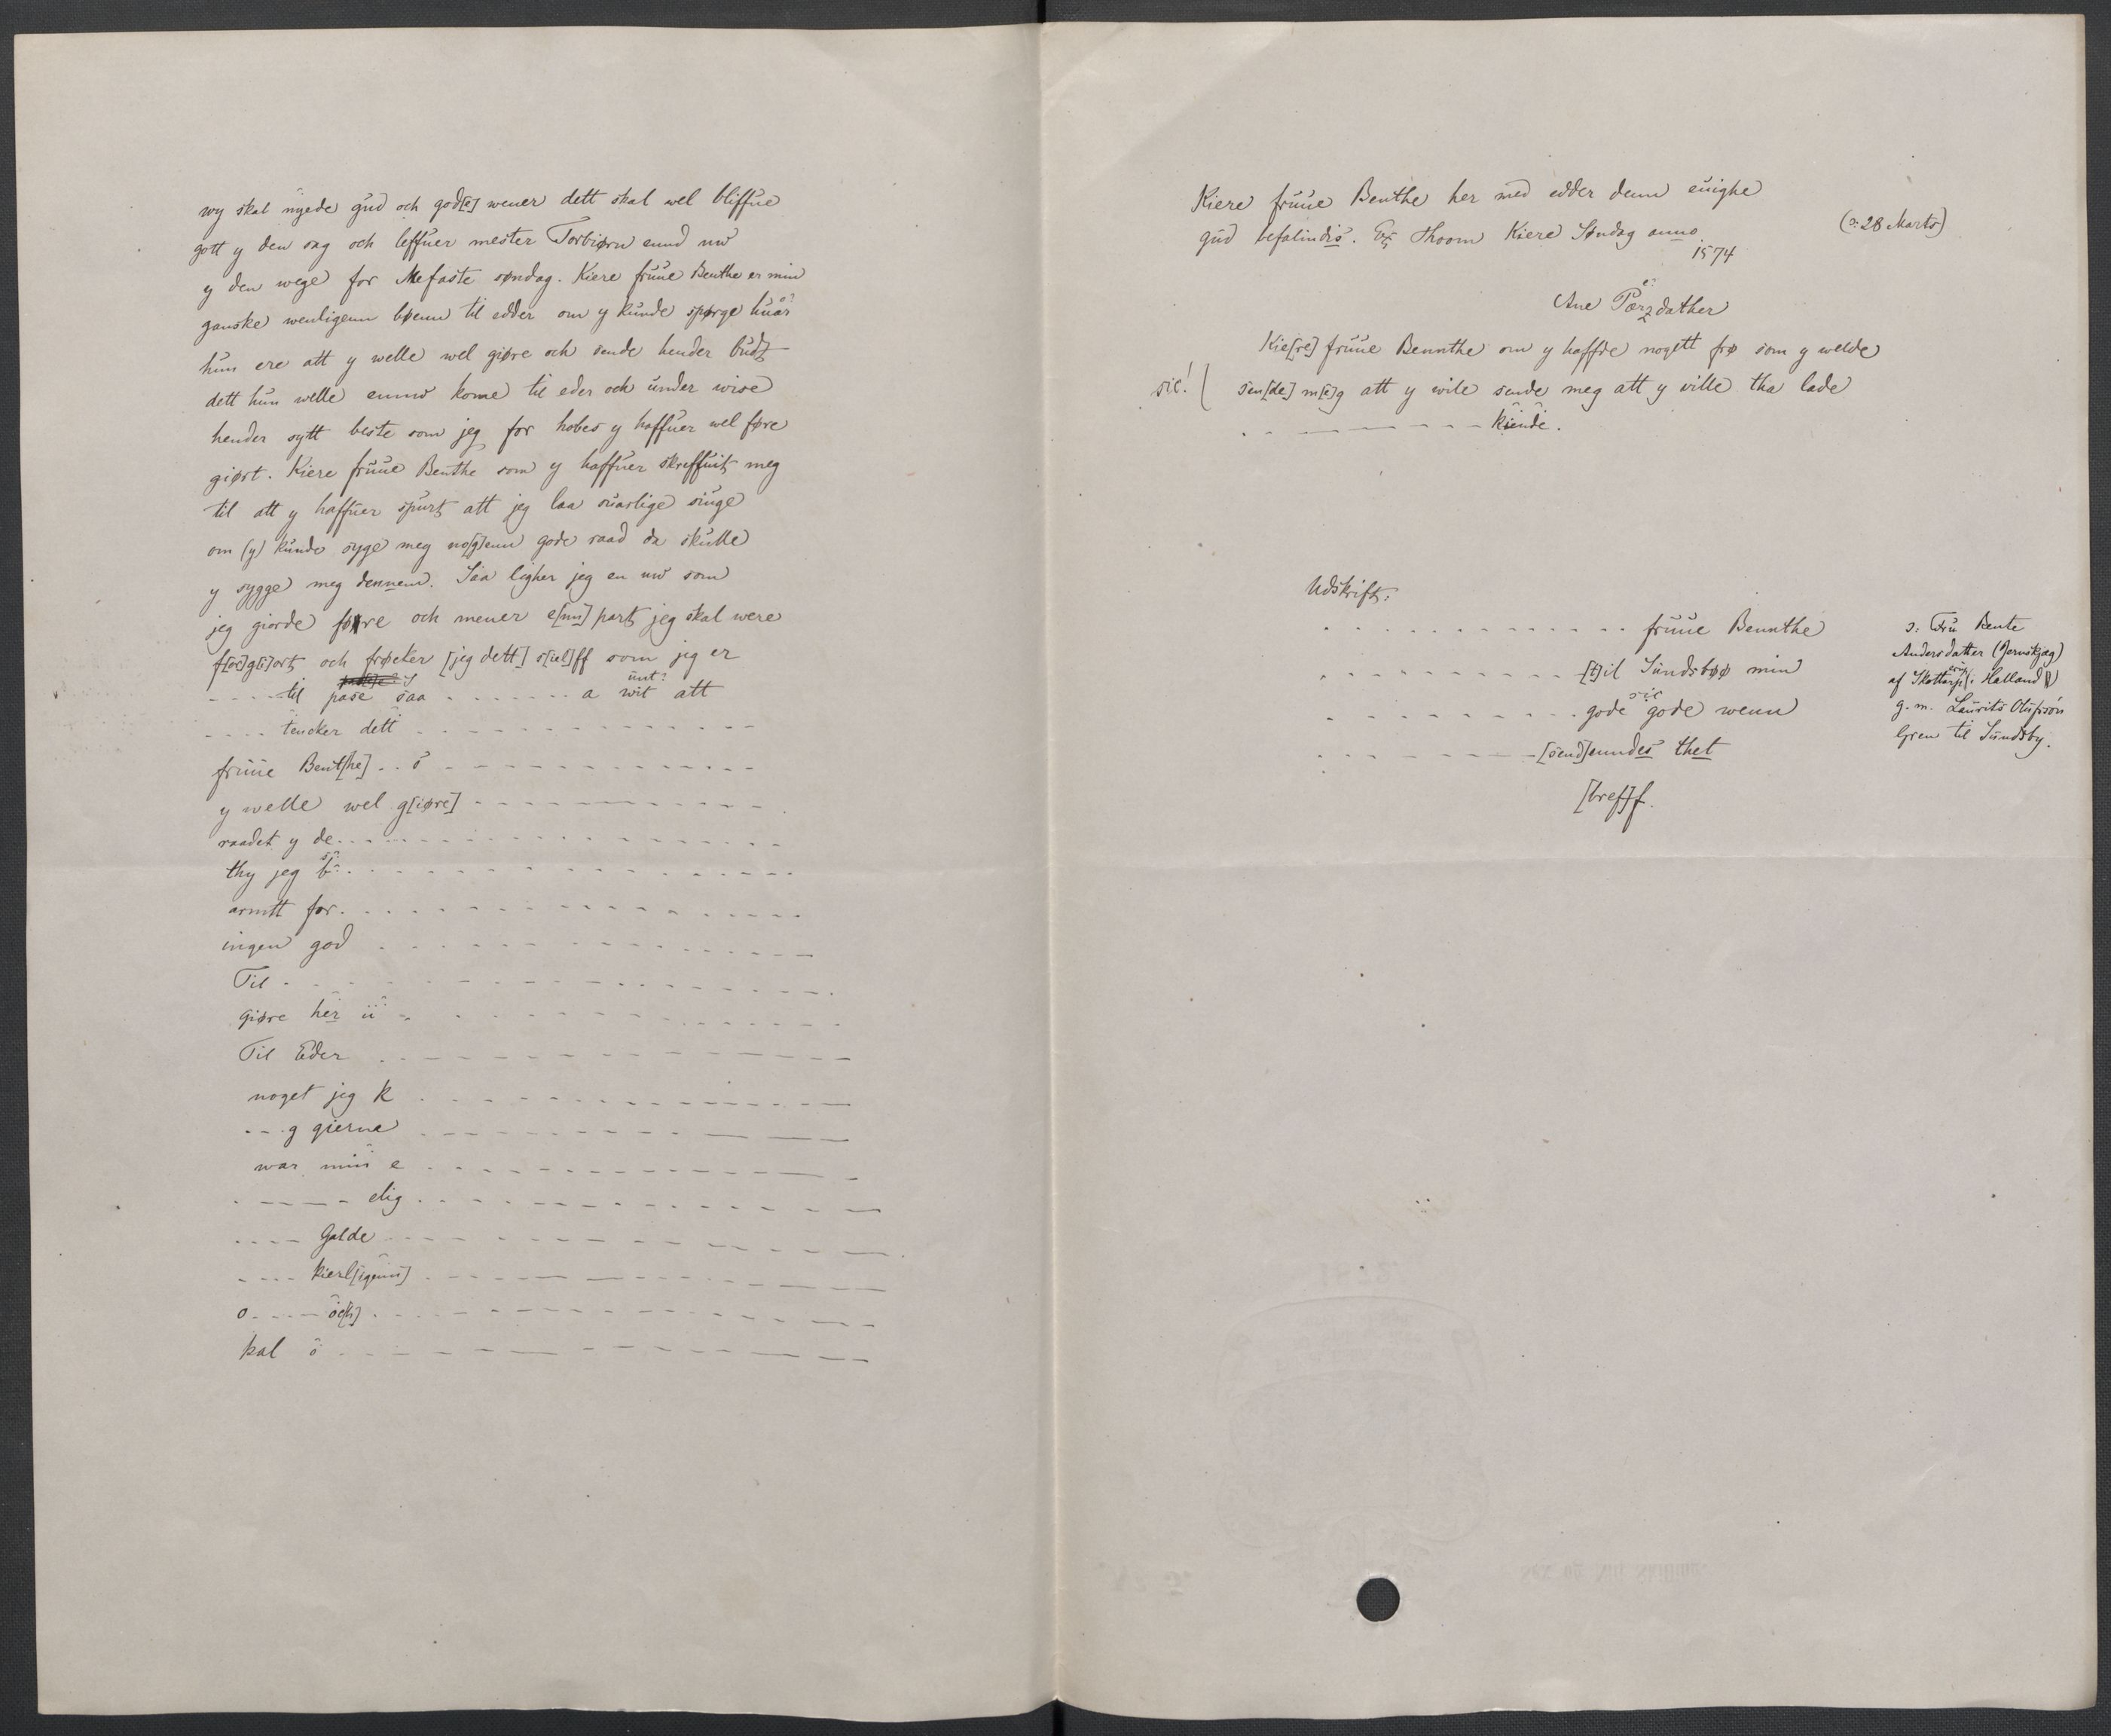 wy skal nyede gud och god[e] wener dett skal wel bliffue
gott y den sag och leffuer mester Torbiørn ennd nw
y den wege for Mefaste søndag. Kiere fruue Benthe er min
ganske wenligenn bøenn til edder om y kunde spørge huar
hun ere att y welle wel giøre och sende hender budt
dett hun welle ennw kome til eder och under wise
hender sytt beste som jeg for hobes y haffuer wel føre
giørt. Kiere fruue Benthe som y haffuer skreffuit meg
til att y haffuer spurt att jeg laa suarlige siuge
om (y) kunde syge meg no[g]enn gode raad da skulle
y sygge meg dennem. Saa ligher jeg en nw som
jeg giorde føre och mener e[nn] part jeg skal were
f[or]g[i]ort och frøcter [jeg dett] s[iel]ff som jeg er
- - - - til pase saa . . . . . . . a wit att
unt?
- - - - tencker dett - - - - - - - -
fruue Bent[he] . . s - - - - - - - -
y welle wel g[iøre] - - - - - - - -
raadet y de - - - - - - - -
thy jeg b - - - - - - - -
armtt for - - - - - - - -
ingen god - - - - - - - -
Til - - - - - - - -
giøre her u - - - - - - - -
Til Eder - - - - - - - -
noget jeg k - - - - - - - -
- - - g gierne - - - - - - - -
war min e - - - - - - - -
- - - - - elig - - - - - - - -
- - - - Galde - - - - - - - -
- - - - kierl[igenn] - - - - - - - -
o - - - - oc[h] - - - - - - - -
kal s - - - - - - - -
Kiere fruue Benthe her med edder denn euighe
gud befalindis. Ex Thoom Kiere Søndag anno
1574
(ɔ: 28 Marts)
e?
Ane Pærzdather
Kie[re] fruue Bennthe om y haffde nogett frø som y welde
sic! ( sen[de] m[e]g att y wile sende meg att y wille tha lade
- - - - - - - - kiende.
Udskrift:
. . . . . . . . . . . . fruue Bennthe
. . . . . . . . . . [t]il Sundsbøø min
sic
. . . . . . . . . gode gode wenn
. . . . . . . . [send]enndes thet
[breff]f.
ɔ: Fru Bente
Andersdatter (Jernskjæg)
af Skottorp (i Halland)
erup
g. m. Laurits Olufssøn
Green til Sundsby.